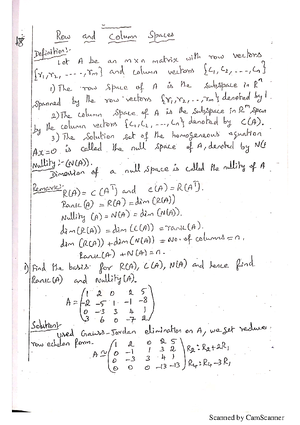 Row and Column Spaces
Definition:-
Let A be an mxn matrix with row vectors
{r1, r2, ---, rm} and column vectors {C1, C2, ..., Cn}
1) The row space of A is the subspace in R^n
spanned by the row vectors {r1, r2, ---, rm} denoted by
2) The column space of A is the subspace in R^m
by the column vectors {C1, C2, ..., Cn} denoted by C(A).
3) The solution set of the homogeneous equation
AX=0 is called the null space of A, denoted by N(
Nullity:- (N(A)).
Dimension of a null space is called the nullity of A
Remarks:- R(A) = C(A^T) and C(A) = R(A^T).
Rank(A) = R(A) = dim(R(A))
Nullity(A) = N(A) = dim(N(A)).
dim(R(A)) = dim(C(A)) = rank(A).
dim(R(A)) + dim(N(A)) = No. of columns = n.
Rank(A) + N(A) = n.
1) Find the basis for R(A), C(A), N(A) and hence find
Rank(A) and Nullity(A).
1 2 0 2 5
A = -2 -5 1 -1 -8
0 -3 3 4 1
3 6 0 -7 2
Solution:-
used Gauss-Jordan elimination on A, we get reduce
row echelon form.
1 2 0 2 5
A ~ 0 -1 1 3 2 R2: R2+2R1
0 -3 3 4 1
0 0 0 -13 -13 R4: R4-3R1
Scanned by CamScanner